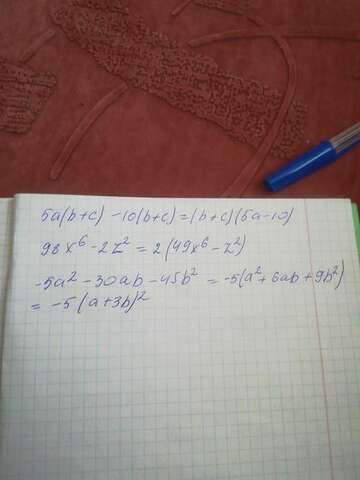 5a(b+c) -10(b+c)=(b+c)(5a-10)
98x⁶-2z²=2(49x⁶-z²)
-5a²-30ab-45b² =-5(a²+6ab+9b²)
= -5(a+3b)²